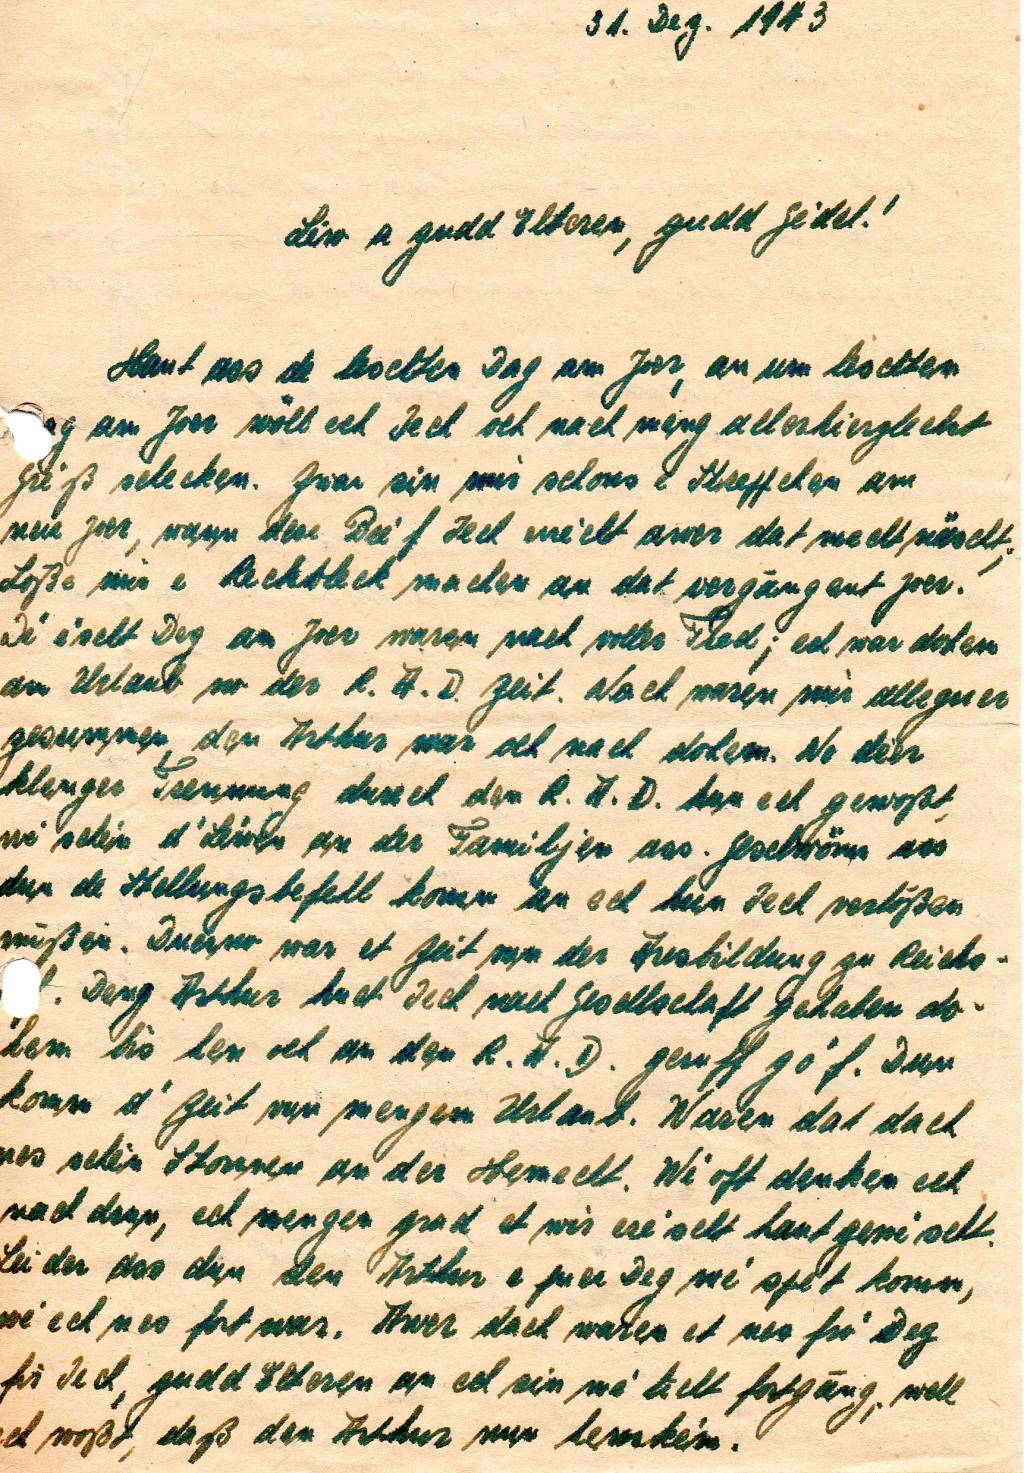 31. Dez. 1943
Léiw a gudd Elteren, gudd Geidel!
Haut ass de leschten Dag am Joer, an um leschten
ag am Joer wöll ech Iech och nach meng allerhierzlechst
Gréiß schecken. Zwar sin mir schons e Steffchen am
neie Joer, wann dese Bréif Iech erréicht awer dat mecht näischt,
Loße mir e Reckbleck machen an dat vergängent Joer.
Déi éischt Deg am Joer waren nach voller Fred; ech war dohem
am Urlaub no der R. A. D. Zeit. Nach waren mir alleguer
zesummen, den Arthur war och nach dohem. No deer
klenger Trennung durech den R. A. D. hun ech gewoßt,
wi schéin d'Léiwen an der Familjen ass. Geschwönn ass
dun de Stellungsbefell komm an ech hun Iech verloßen
mußen. Duerno war et Zeit vun der Ausbildung zu Reichs-
. Deng Arthur huet Iech nach Gesellschaft gehalen do-
hem bis hen och an den R. A. D. geruff góf. Dun
komm d'Zeit vun mengem Urlaub. Waren dat dach
nes schéin Stonnen an der Hemecht. Wéi oft denken ech
nach drun, ech mengen grad et wir eréischt haut gewéischt.
Leider ass dun den Arthur e puer Deg méi spét komm,
wéi ech nes fort war. Awer dach waren et nes fró Deg
fir Iech, gudd Elteren an ech sin méi liicht fortgäng, well
ech woßt, daß den Arthur nun hemkéim.